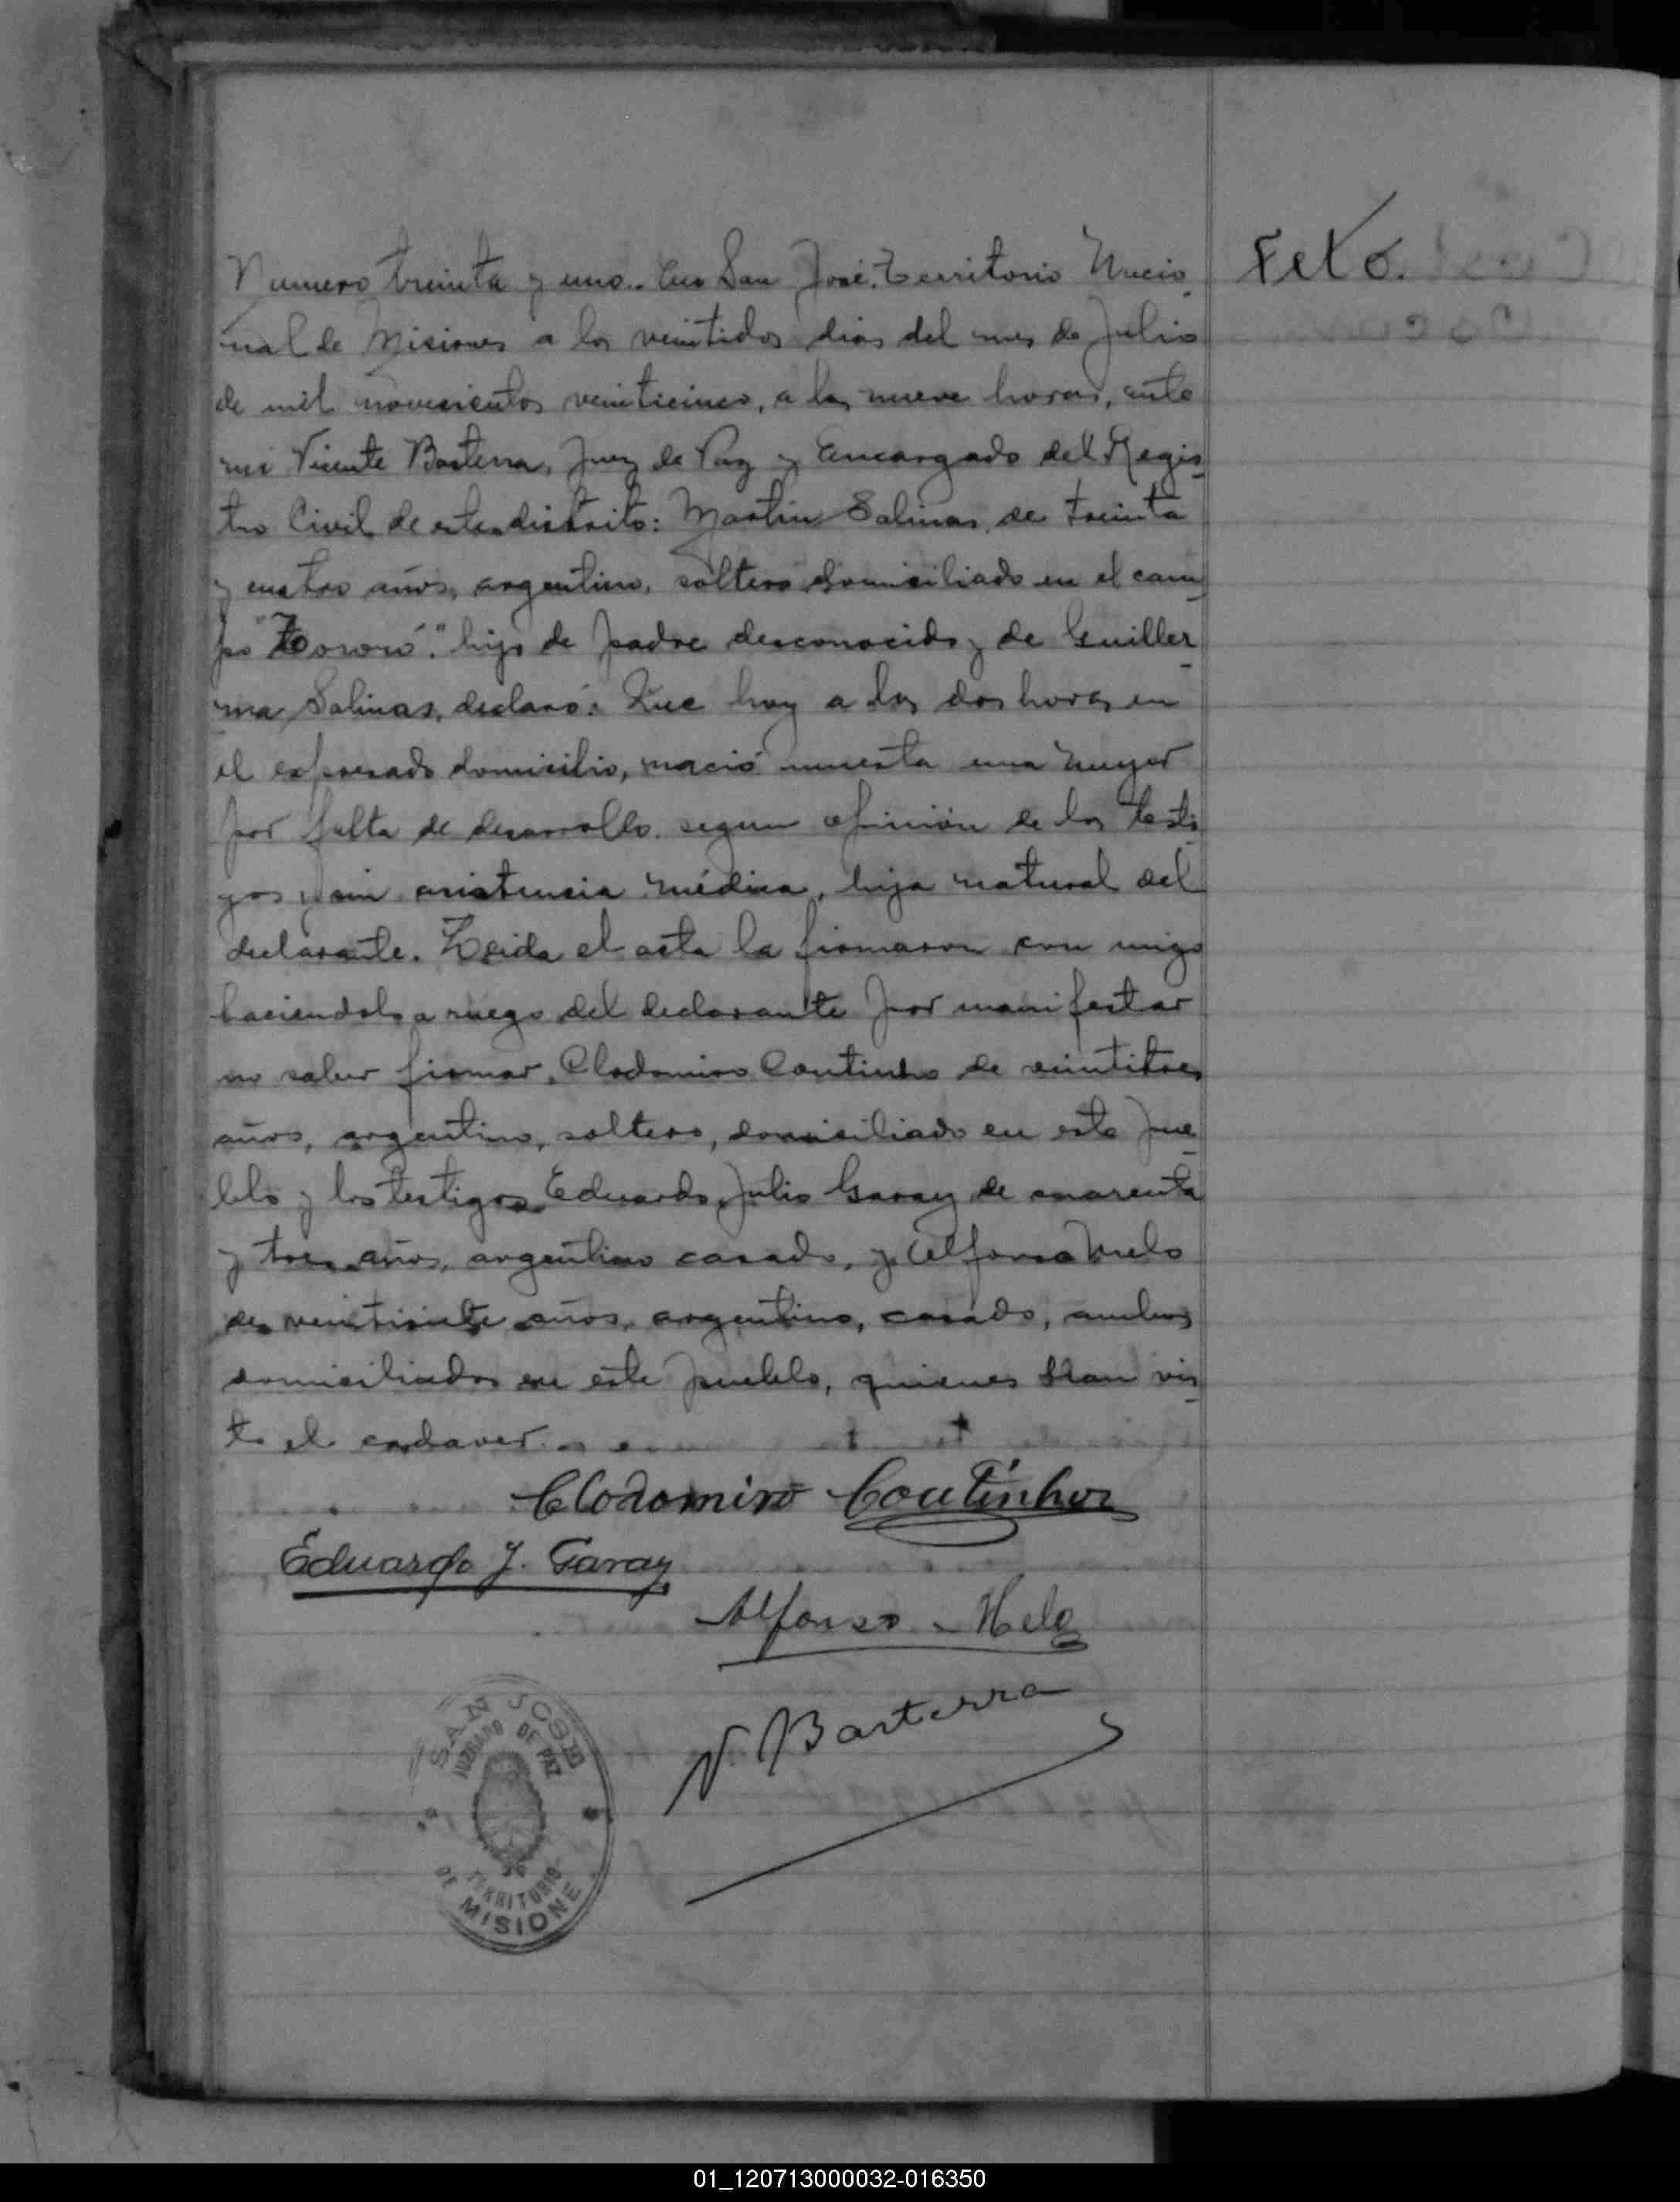 Numero treinta y uno.. En San José, Territorio Nacio
Feto.
nal de Misiones a los veintidos dias del mes de Julio
de mil novecientos veinticinco, a las nueve horas, ante
mi Vicente Basterra, Juez de Paz y Encargado del Regis
tro Civil de este distrito: Martin Salinas, de treinta
y cuatro años, argentino, soltero domiciliado en el cam
po "Zororó". hijo de padre desconocido y de Guiller
ma Salinas, declaró: Que hoy a las dos horas en
el expresado domicilio, nació muerta una muger
por falta de desarrollo segun opinión de los testi
gos y sin asistencia médica, hija natural del
declarante. Leida el acta la firmaron con migo
haciendolo a ruego del declarante por manifestar
no saber firmar, Clodomiro Coutinho de veintitres
años, argentino, soltero, domiciliado en este pue
blo y los testigos Eduardo Julio Garay de cuarenta
y tres años, argentino casado, y Alfonso Melo
de veintisiete años, argentino, casado, ambos
domiciliados en este pueblo, quienes han vis
to el cadaver.
Clodomiro Coutinho
Eduardo J. Garay
Alfonso Melo
V. Basterra
SAN JOSE
JUZGADO DE PAZ
TERRITORIO
DE MISIONE
01_120713000032-016350